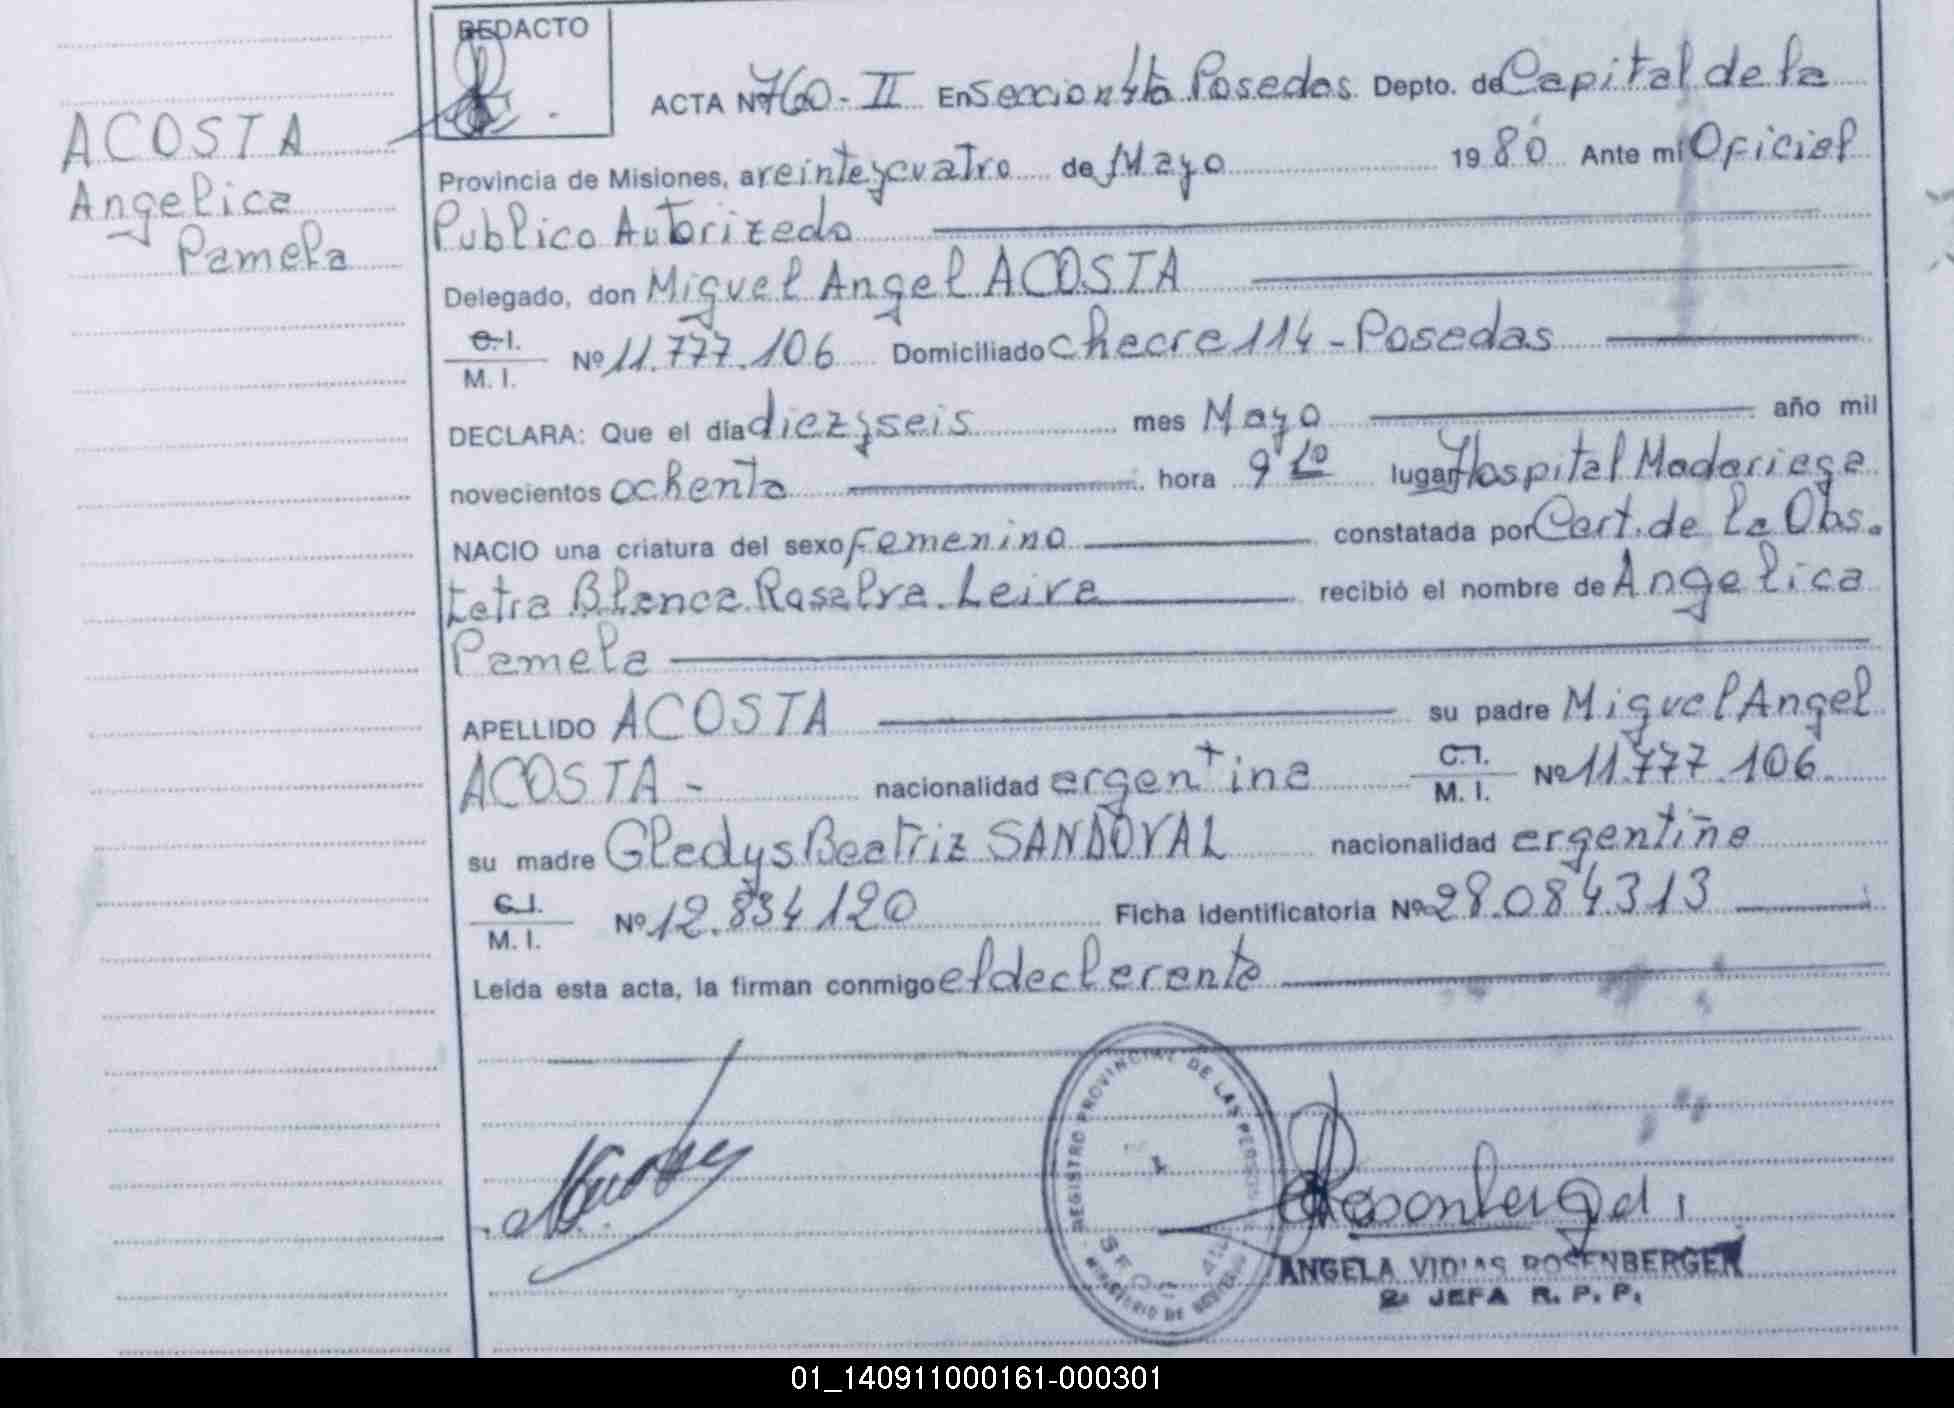 REDACTO
ACTA Nº 760 - II En Seccion 4ta Posadas Depto. de Capital de la
Provincia de Misiones, a veinteycuatro de Mayo 1980 Ante mí Oficial
Publico Autorizado
Delegado, don Miguel Angel ACOSTA
C. I.
M. I. Nº 11.777.106 Domiciliado Chacra 114 - Posadas
DECLARA: Que el día diezyseis mes Mayo año mil
novecientos ochenta hora 9 lugar Hospital Madariaga
NACIO una criatura del sexo Femenino constatada por Cert. de la Obs.
tetra Blanca Rosalva Leiva recibió el nombre de Angelica
Pamela
APELLIDO ACOSTA su padre Miguel Angel
ACOSTA - nacionalidad argentina C. I.
M. I. Nº 11.777.106
su madre Gladys Beatriz SANDOVAL nacionalidad argentina
C. I.
M. I. Nº 12.834120 Ficha identificatoria Nº 28.084.313
Leída esta acta, la firman conmigo el declarante
ACOSTA
Angelica
Pamela
REGISTRO PROVINCIAL DE LAS PERSONAS
MINISTERIO DE
ANGELA ROSENBERGER
2ª JEFA R. P. P.
01_140911000161-000301